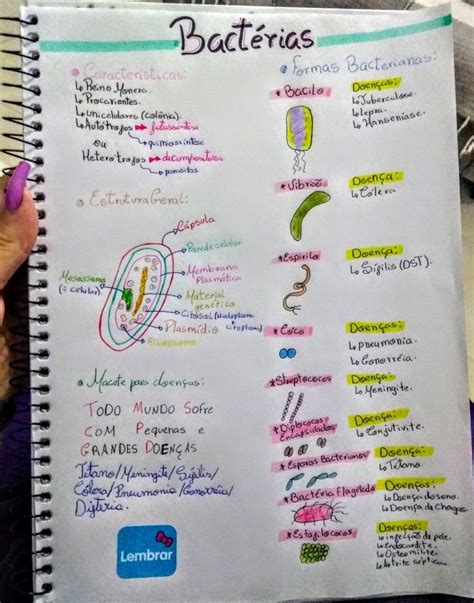 Bactérias
Características:
↳ Reino Monera.
↳ Procariontes.
↳ Unicelulares (colônia).
↳ Autótrofos → fotossíntese
↳ quimiossíntese
ou
Heterótrofos → decompositores
↳ parasitas
Estrutura Geral:
Cápsula
Parede celular
Membrana
Plasmática
Mesossomo
Material
genético
Citosol
Plasmídio
Ribossomo
Macete para doenças:
TODO MUNDO SOFRE
COM PEQUENAS E
GRANDES DOENÇAS
Tétano/Meningite/Sífilis/
Cólera/Pneumonia/Gonorréia/
Difteria.
Lembrar
Formas Bacterianas:
* Bacilo
Doenças:
↳ Tuberculose.
↳ Lepra.
↳ Hanseníase.
* Vibrião
Doença:
↳ Cólera
* Espirilo
Doença:
↳ Sífilis (DST).
* Coco
Doenças:
↳ pneumonia.
↳ Gonorréia.
* Streptococos
Doença:
↳ Meningite.
* Diplococos
Encapsulados
Doença:
↳ Conjutivite.
* Esporos Bacterianos
Doença:
↳ Tétano.
* Bactéria Flagelada
Doenças:
↳ Doença do sono.
↳ Doença de Chagas
* Estafilococos
Doenças:
↳ injecção de pele.
↳ Endocardite.
↳ Osteomilite
↳ Artrite séptica